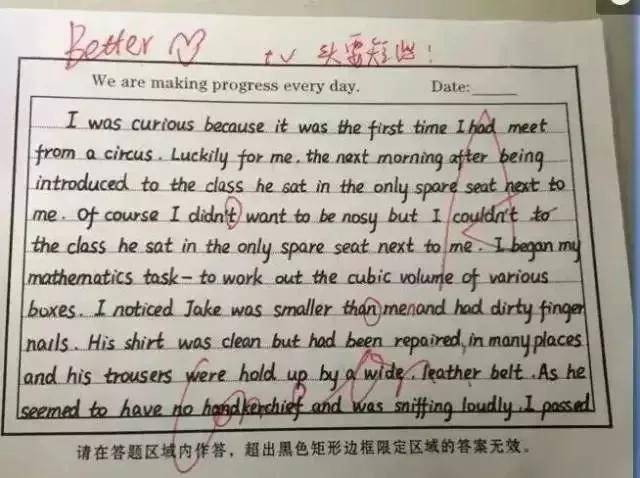 Better ♡ tv 头要短些!
We are making progress every day. Date:
I was curious because it was the first time I had meet
from a circus. Luckily for me, the next morning after being
introduced to the class he sat in the only spare seat next to
me. Of course I didn't want to be nosy but I couldn't to
the class he sat in the only spare seat next to me. I began my
mathematics task - to work out the cubic volume of various
boxes. I noticed Jake was smaller than menand had dirty finger
nails. His shirt was clean but had been repaired, in many places
and his trousers were hold up by a wide, leather belt. As he
seemed to have no handkerchief and was sniffing loudly. I passed
请在答题区域内作答，超出黑色矩形边框限定区域的答案无效。